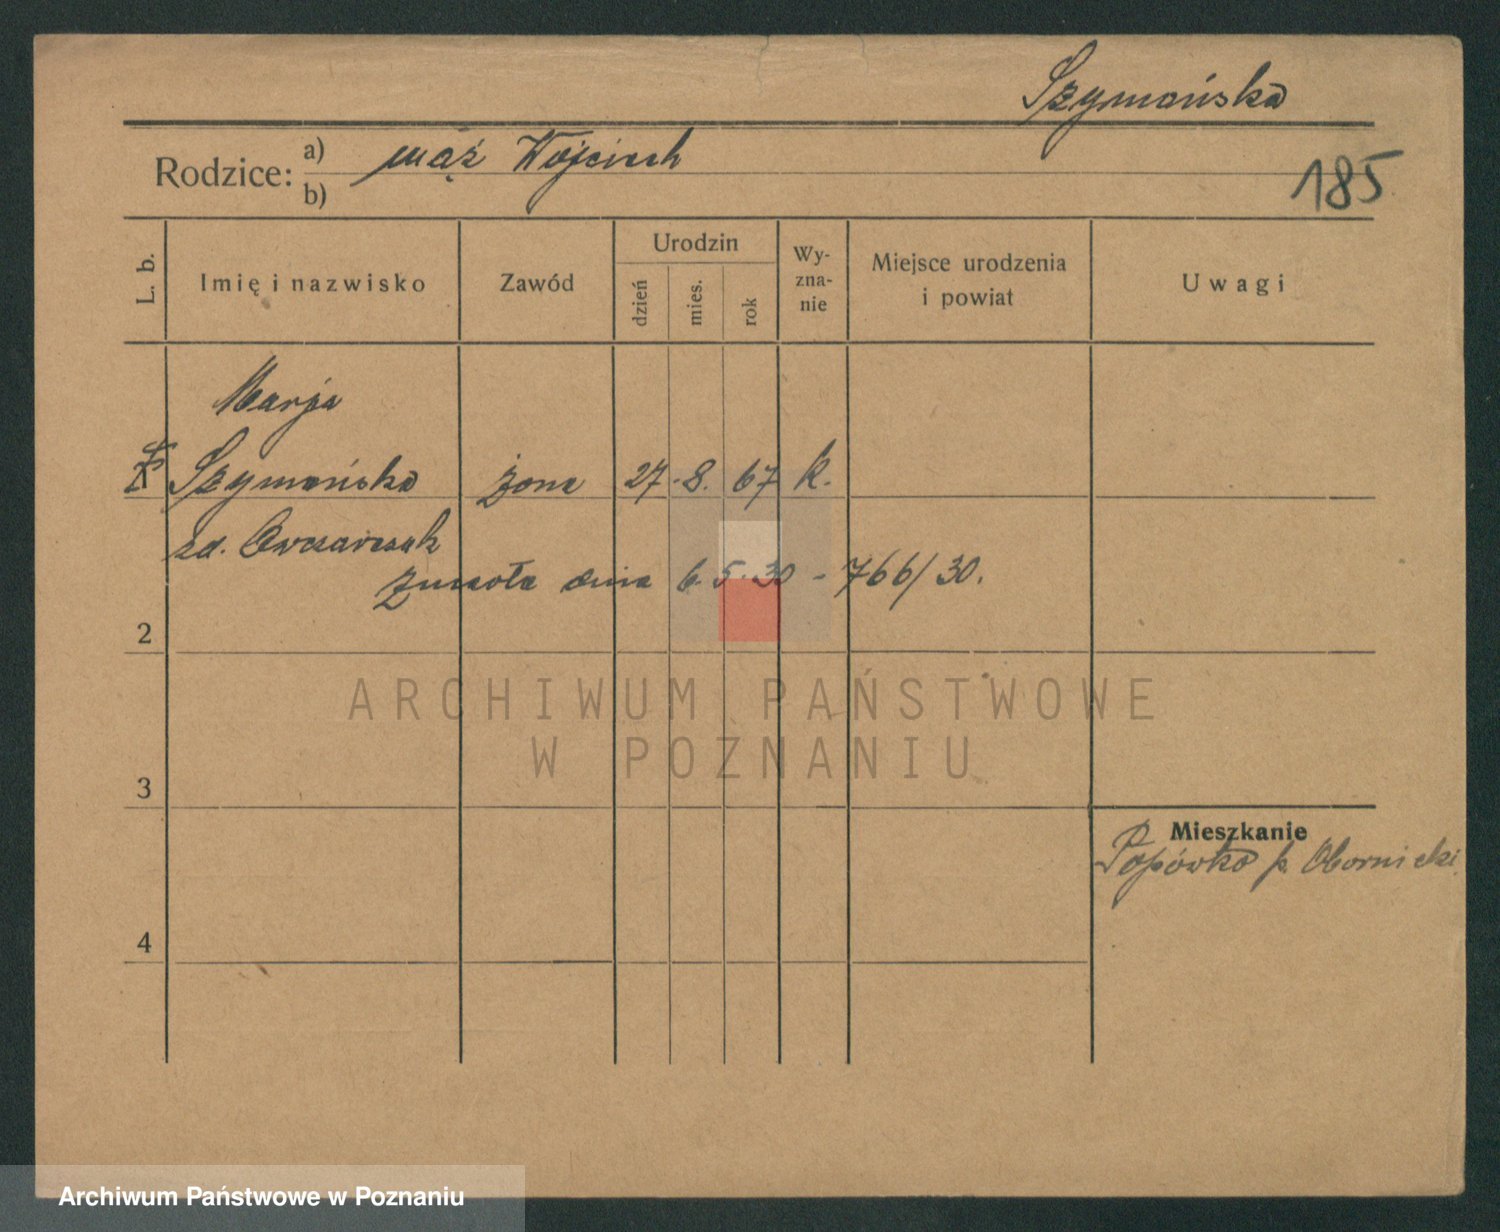 Szymańska
Rodzice: a) mąż Wojciech
b)
185
L. b. Imię i nazwisko Zawód Urodzin dzień mies. rok Wyznanie Miejsce urodzenia i powiat Uwagi
Marja
Szymańska żona 27. 8. 67 k.
zd. Owczarczak
zmarła dnia 6. 5. 30 - 766/30.
2
ARCHIWUM PAŃSTWOWE
W POZNANIU
3
Mieszkanie
Popówko p. Obornicki.
4
Archiwum Państwowe w Poznaniu